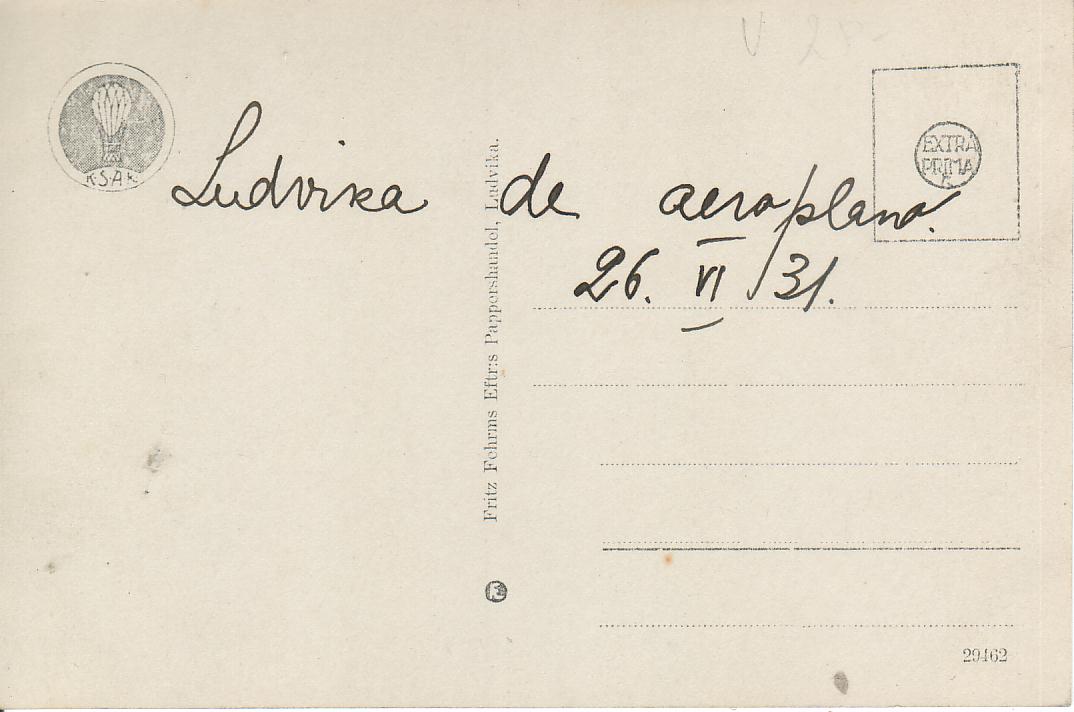 V 25-
K·S·A·K
EXTRA
PRIMA
K
Ludvika de aeroplano.
26. VI 31.
Fritz Fehrms Eftr:s Pappershandel, Ludvika.
29462